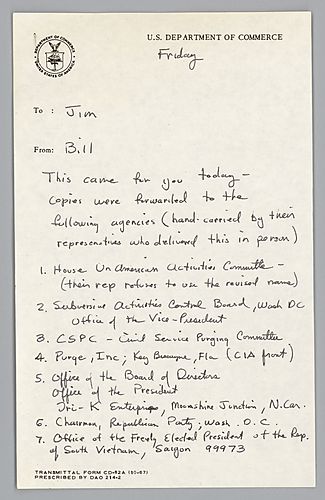 U.S. DEPARTMENT OF COMMERCE
Friday
DEPARTMENT OF COMMERCE
UNITED STATES OF AMERICA
To : Jim
From: Bill
This came for you today -
copies were forwarded to the
following agencies (hand-carried by their
representives who delivered this in person)
1. House Un American Activities Committe -
(their rep refuses to use the revised name)
2. Subversive Activities Control Board, Wash DC
Office of the Vice-President
3. CSPC - Civil Service Purging Committe
4. Purge, Inc; Key Biscayne, Fla (CIA front)
5. Office of the Board of Directors
Office of the President
Tri-K Enterprises, Moonshine Junction, N.Car.
6. Chairman, Republican Party; Wash. D.C.
7. Office of the Freely Elected President of the Rep.
of South Vietnam, Saigon 99973
TRANSMITTAL FORM CD-82A (10-67)
PRESCRIBED BY DAO 214-2